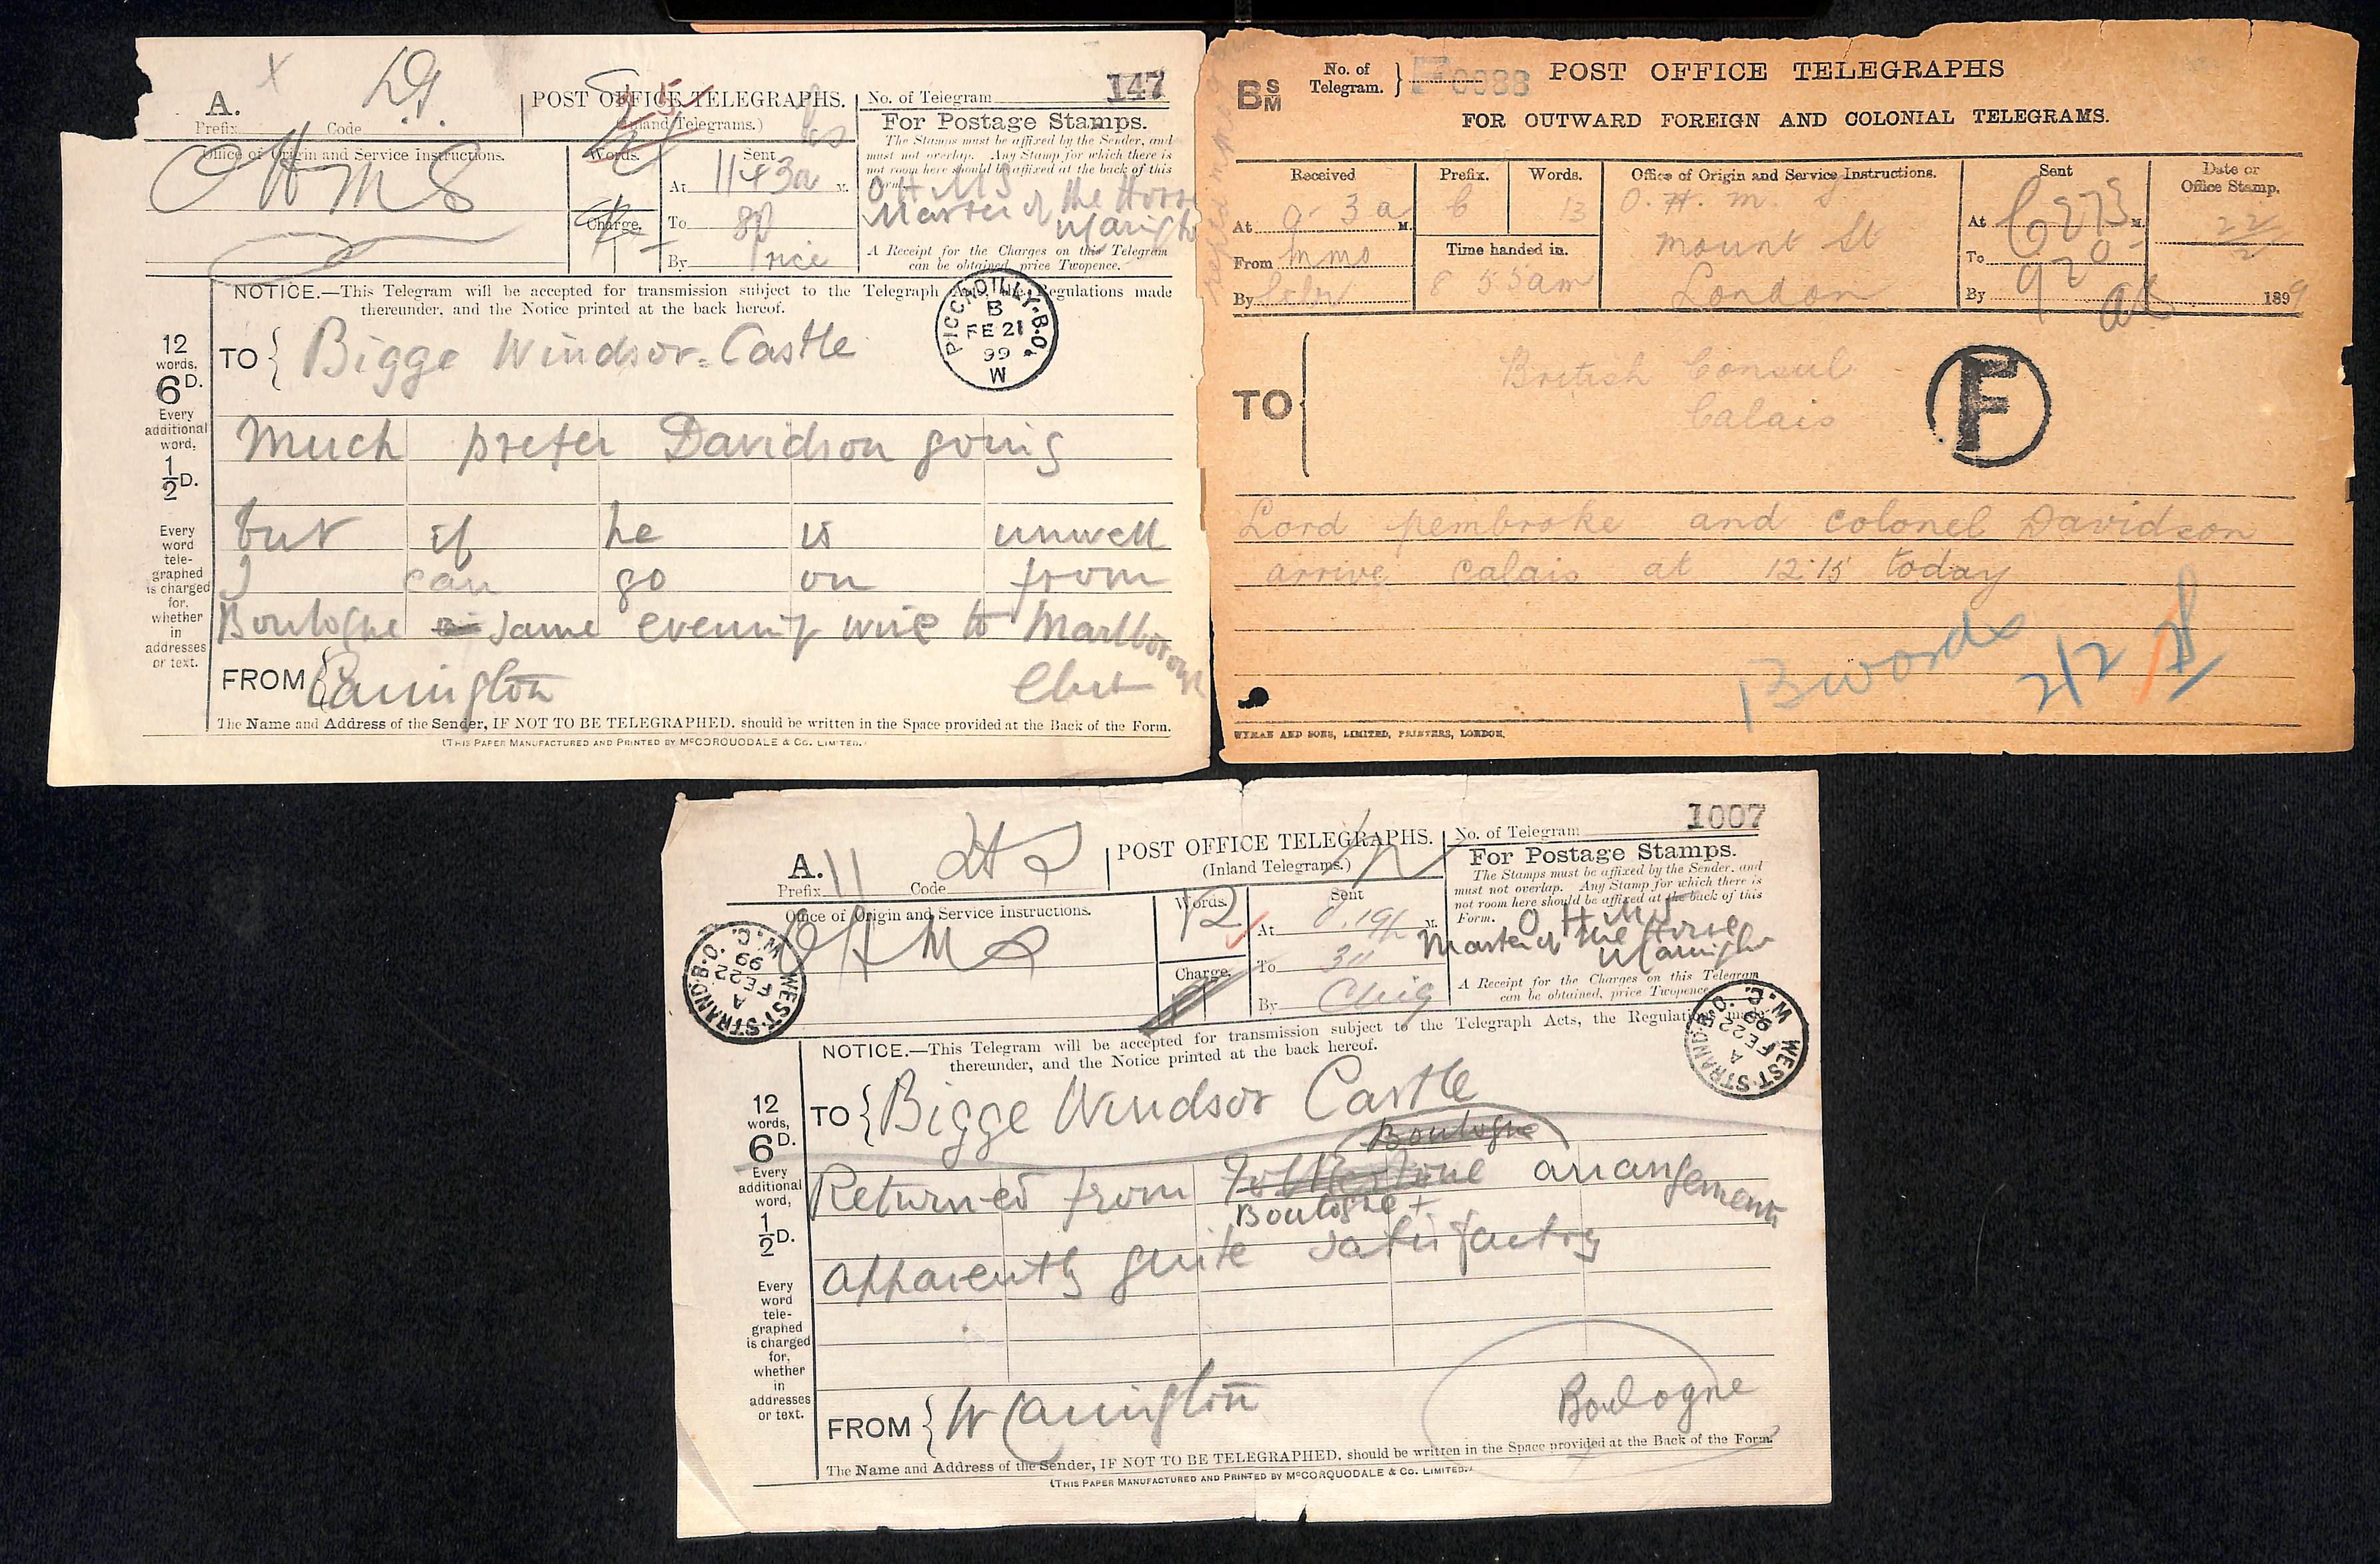 147
A.
Prefix Code
POST OFFICE TELEGRAPHS.
(Inland Telegrams.)
No. of Telegram
For Postage Stamps.
The Stamps must be affixed by the Sender, and
must not overlap. Any Stamp for which there is
not room here should be affixed at the back of this
Form.
O H M S
Master of the Horse
A Receipt for the Charges on this Telegram
can be obtained, price Twopence.
Office of Origin and Service Instructions.
O H M S
Words.
Charge.
Sent
At 11 43a M.
To
By Price
NOTICE.—This Telegram will be accepted for transmission subject to the Telegraph Acts, the Regulations made
thereunder, and the Notice printed at the back hereof.
PICCADILLY·B.O.
B
FE 21
99
W
12
words,
6D.
Every
additional
word,
1/2D.
Every
word
tele-
graphed
is charged
for,
whether
in
addresses
or text.
TO { Bigge Windsor Castle
Much prefer Davidson going
but if he is unwell
I can go on from
Boulogne same evening wire to Marlborough
Club
FROM { Carington
The Name and Address of the Sender, IF NOT TO BE TELEGRAPHED, should be written in the Space provided at the Back of the Form.
(THIS PAPER MANUFACTURED AND PRINTED BY McCORQUODALE & Co. LIMITED.)
BSM
No. of
Telegram. } F 0088
POST OFFICE TELEGRAPHS
FOR OUTWARD FOREIGN AND COLONIAL TELEGRAMS.
Received
At 9 3 a M.
From mms
By
Prefix.
Words.
13
Time handed in.
8 55 am
Office of Origin and Service Instructions.
O. H. M. S.
Mount St
London
Sent
At M.
To
By
Date or
Office Stamp.
22/2
1899
TO { British Consul
Calais
F
Lord pembroke and colonel Davidson
arrive calais at 12.15 today
13 words
2/2
WYMAN AND SONS, LIMITED, PRINTERS, LONDON.
1007
A.
Prefix Code
POST OFFICE TELEGRAPHS.
(Inland Telegrams.)
No. of Telegram
For Postage Stamps.
The Stamps must be affixed by the Sender, and
must not overlap. Any Stamp for which there is
not room here should be affixed at the back of this
Form.
O H M S
Master of the Horse
W Carington
A Receipt for the Charges on this Telegram
can be obtained, price Twopence.
Office of Origin and Service Instructions.
O H M S
Words.
12
Charge.
Sent
At M.
To
By
WEST·STRAND·B.O.
W.C.
A
FE 22
99
WEST·STRAND·B.O.
W.C.
A
FE 22
99
NOTICE.—This Telegram will be accepted for transmission subject to the Telegraph Acts, the Regulations made
thereunder, and the Notice printed at the back hereof.
12
words,
6D.
Every
additional
word,
1/2D.
Every
word
tele-
graphed
is charged
for,
whether
in
addresses
or text.
TO { Bigge Windsor Castle
Boulogne
Returned from Folkestone arrangements
Boulogne +
apparently quite satisfactory
FROM { W Carington
Boulogne
The Name and Address of the Sender, IF NOT TO BE TELEGRAPHED, should be written in the Space provided at the Back of the Form.
(THIS PAPER MANUFACTURED AND PRINTED BY McCORQUODALE & Co. LIMITED.)